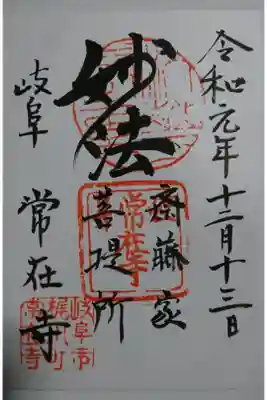 令和元年十二月十三日
妙法
斎藤家
菩提所
常在寺
岐阜
常在寺
岐阜市
梶川町
常在寺